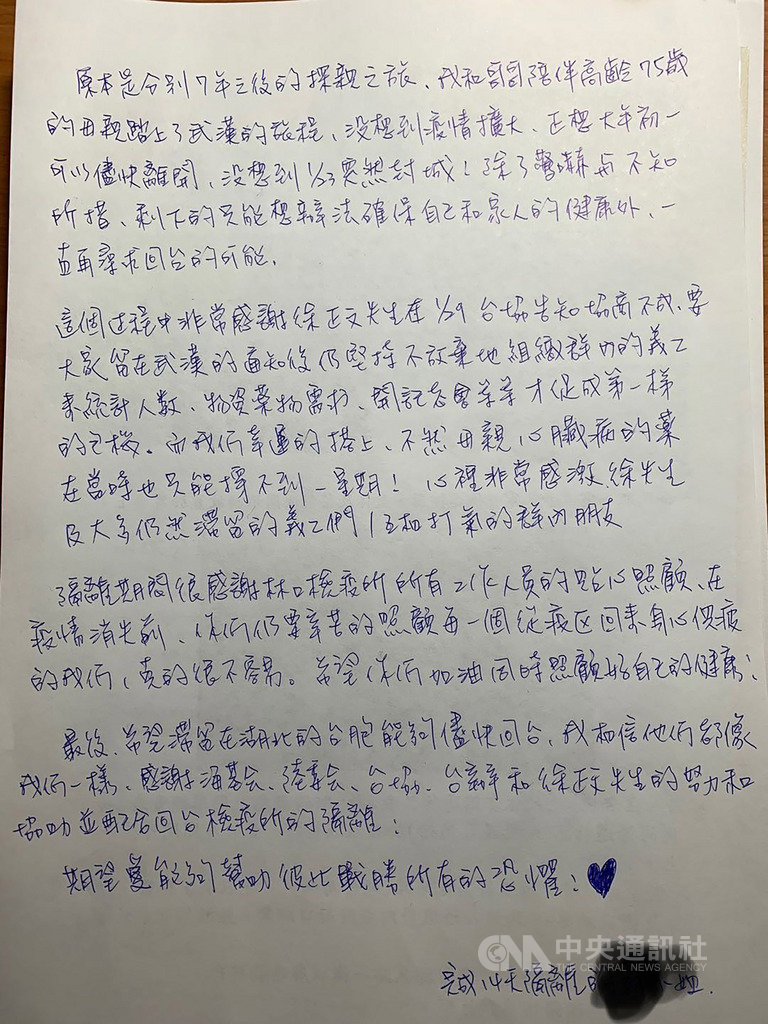 原本是分別7年之後的探親之旅、我和哥哥陪伴高齡75歲
的母親踏上了武漢的旅程、沒想到疫情擴大、正想大年初一
可以儘快離開、沒想到1/23突然封城！除了驚嚇與不知
所措、剩下的只能想辦法確保自己和家人的健康外、一
直再尋求回台的可能.
這個过程中非常感謝徐正文先生在1/29台协告知協商不成、要
大家留在武漢的通知後仍堅持不放棄地組織群內的義工
來統計人數、物資葯物需求、開記者會等等才促成第一梯
的包機。而我們幸運的搭上、不然母親心臟病的葯
在當時也只能撐不到一星期！心裡非常感激徐先生
及大多仍然滯留的義工們/互相打氣的群內朋友
隔離期間很感謝林口檢疫所所有工作人員的貼心照顧、在
疫情消失前、你们仍要辛苦的照顧每一個從疫区回來身心俱疲
的我们，真的很不容易。希望你们加油同時照顧好自己的健康！
最後、希望滯留在湖北的台胞能夠儘快回台、我相信他们都像
我们一樣、感謝海基会、陸委会、台协、台辦和徐正文先生的努力和
協助並配合回台檢疫所的隔離！
期望愛能夠幫助彼此戰勝所有的恐懼！♥
完成14天隔離的 小姐.
CNA 中央通訊社
CENTRAL NEWS AGENCY